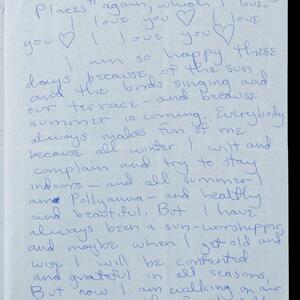 Places" again, which I love.
I love you ♡ I love
you ♡ I love you ♡
I am so happy these
days because of the sun
and the birds singing and
our terrace – and because
summer is coming. Everybody
always makes fun of me
because all winter I wilt and
complain and try to stay
indoors – and all summer I
am Pollyanna – and healthy
and beautiful. But I have
always been a sun-worshipper
and maybe when I get old and
wise I will be contented
and grateful in all seasons.
But now I am walking on air